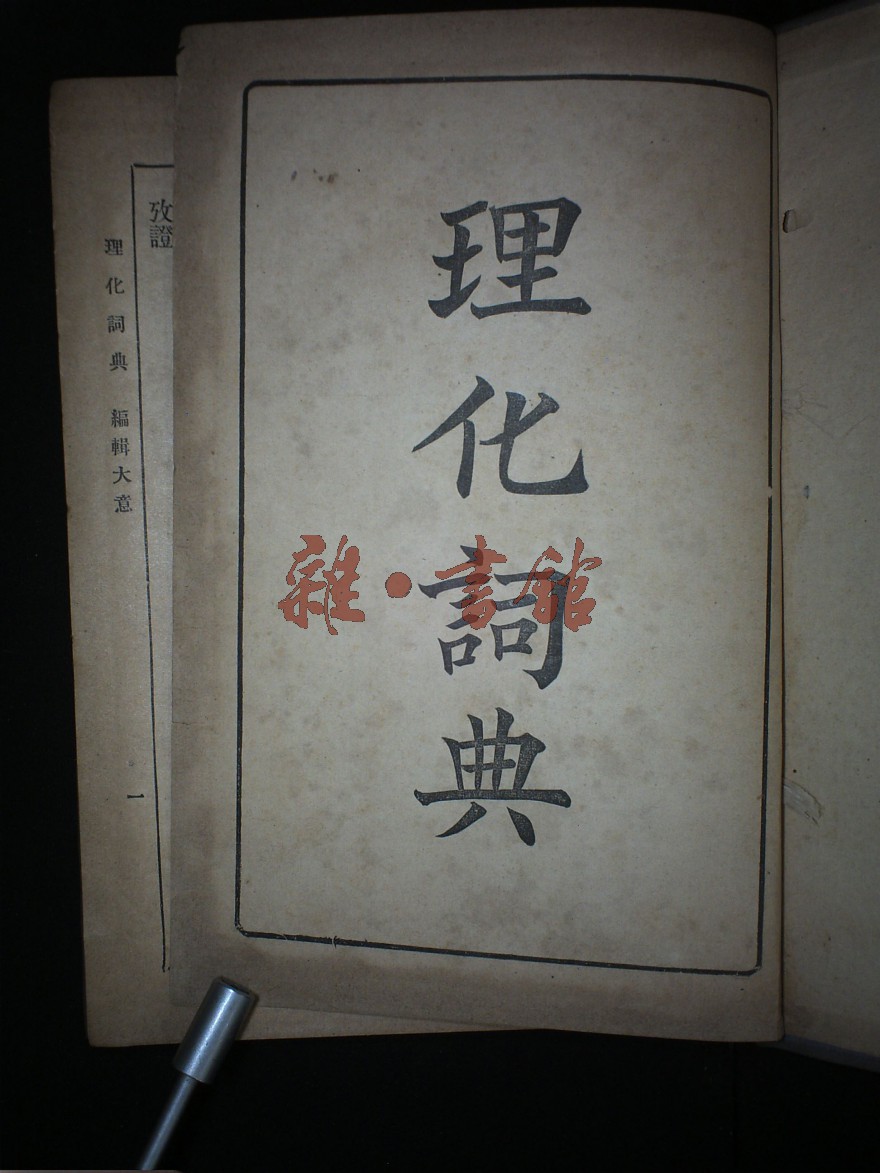 理化詞典
雜·書館
攷證
理化詞典 編輯大意
一